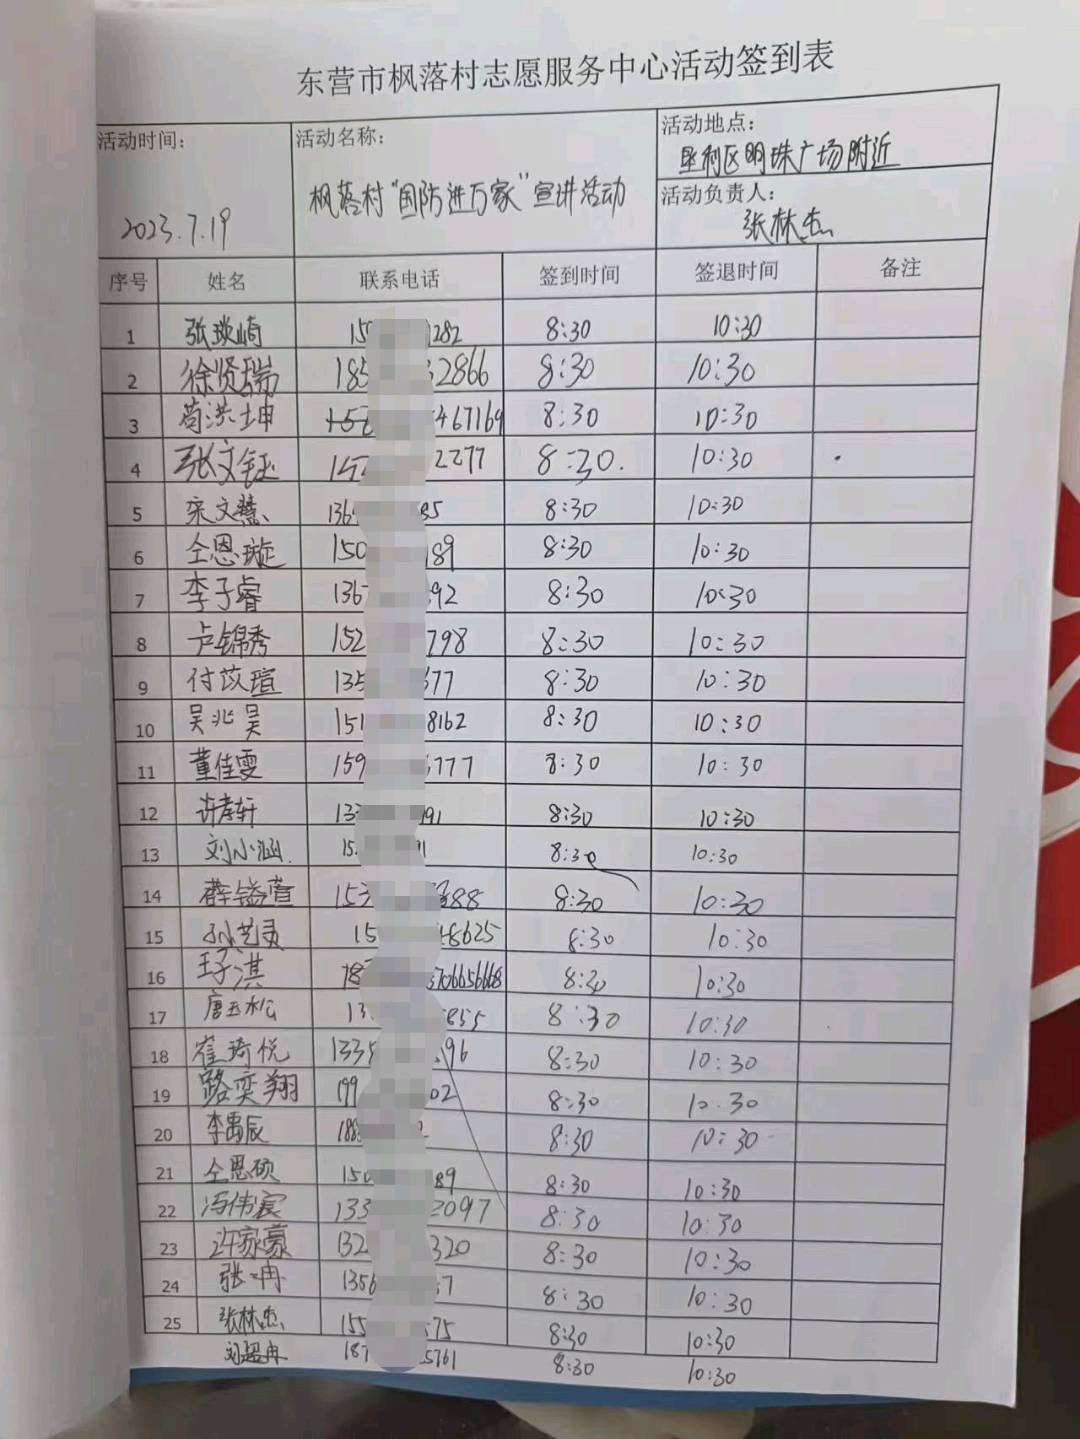 东营市枫落村志愿服务中心活动签到表
活动时间： 活动名称： 活动地点：
垦利区明珠广场附近
2023.7.19 枫落村“国防进万家”宣讲活动
活动负责人：
张林杰
序号 姓名 联系电话 签到时间 签退时间 备注
1 张琰崎 15 282 8:30 10:30
2 徐贤瑞 185 2866 8:30 10:30
3 苟洪坤 467169 8:30 10:30
4 张文钰 2277 8:30. 10:30
5 宋文慧 136 85 8:30 10:30
6 仝恩璇 150 189 8:30 10:30
7 李子睿 136 92 8:30 10:30
8 卢锦秀 152 798 8:30 10:30
9 付苡瑄 135 77 8:30 10:30
10 吴兆昊 151 8162 8:30 10:30
11 董佳雯 159 777 8:30 10:30
12 许孝轩 13 91 8:30 10:30
13 刘小涵 15 1 8:30 10:30
14 薛镒萱 153 388 8:30 10:30
15 孙艺灵 15 8625 8:30 10:30
16 王子淇 18 3706656668 8:30 10:30
17 唐玉松 13 855 8:30 10:30
18 崔琦悦 133 96 8:30 10:30
19 路奕翔 199 02 8:30 10:30
20 李禹辰 188 2 8:30 10:30
21 仝恩硕 150 89 8:30 10:30
22 冯伟宸 133 2097 8:30 10:30
23 许家豪 132 320 8:30 10:30
24 张冉 1356 7 8:30 10:30
25 张林杰 155 575 8:30 10:30
刘超冉 187 5761 8:30 10:30